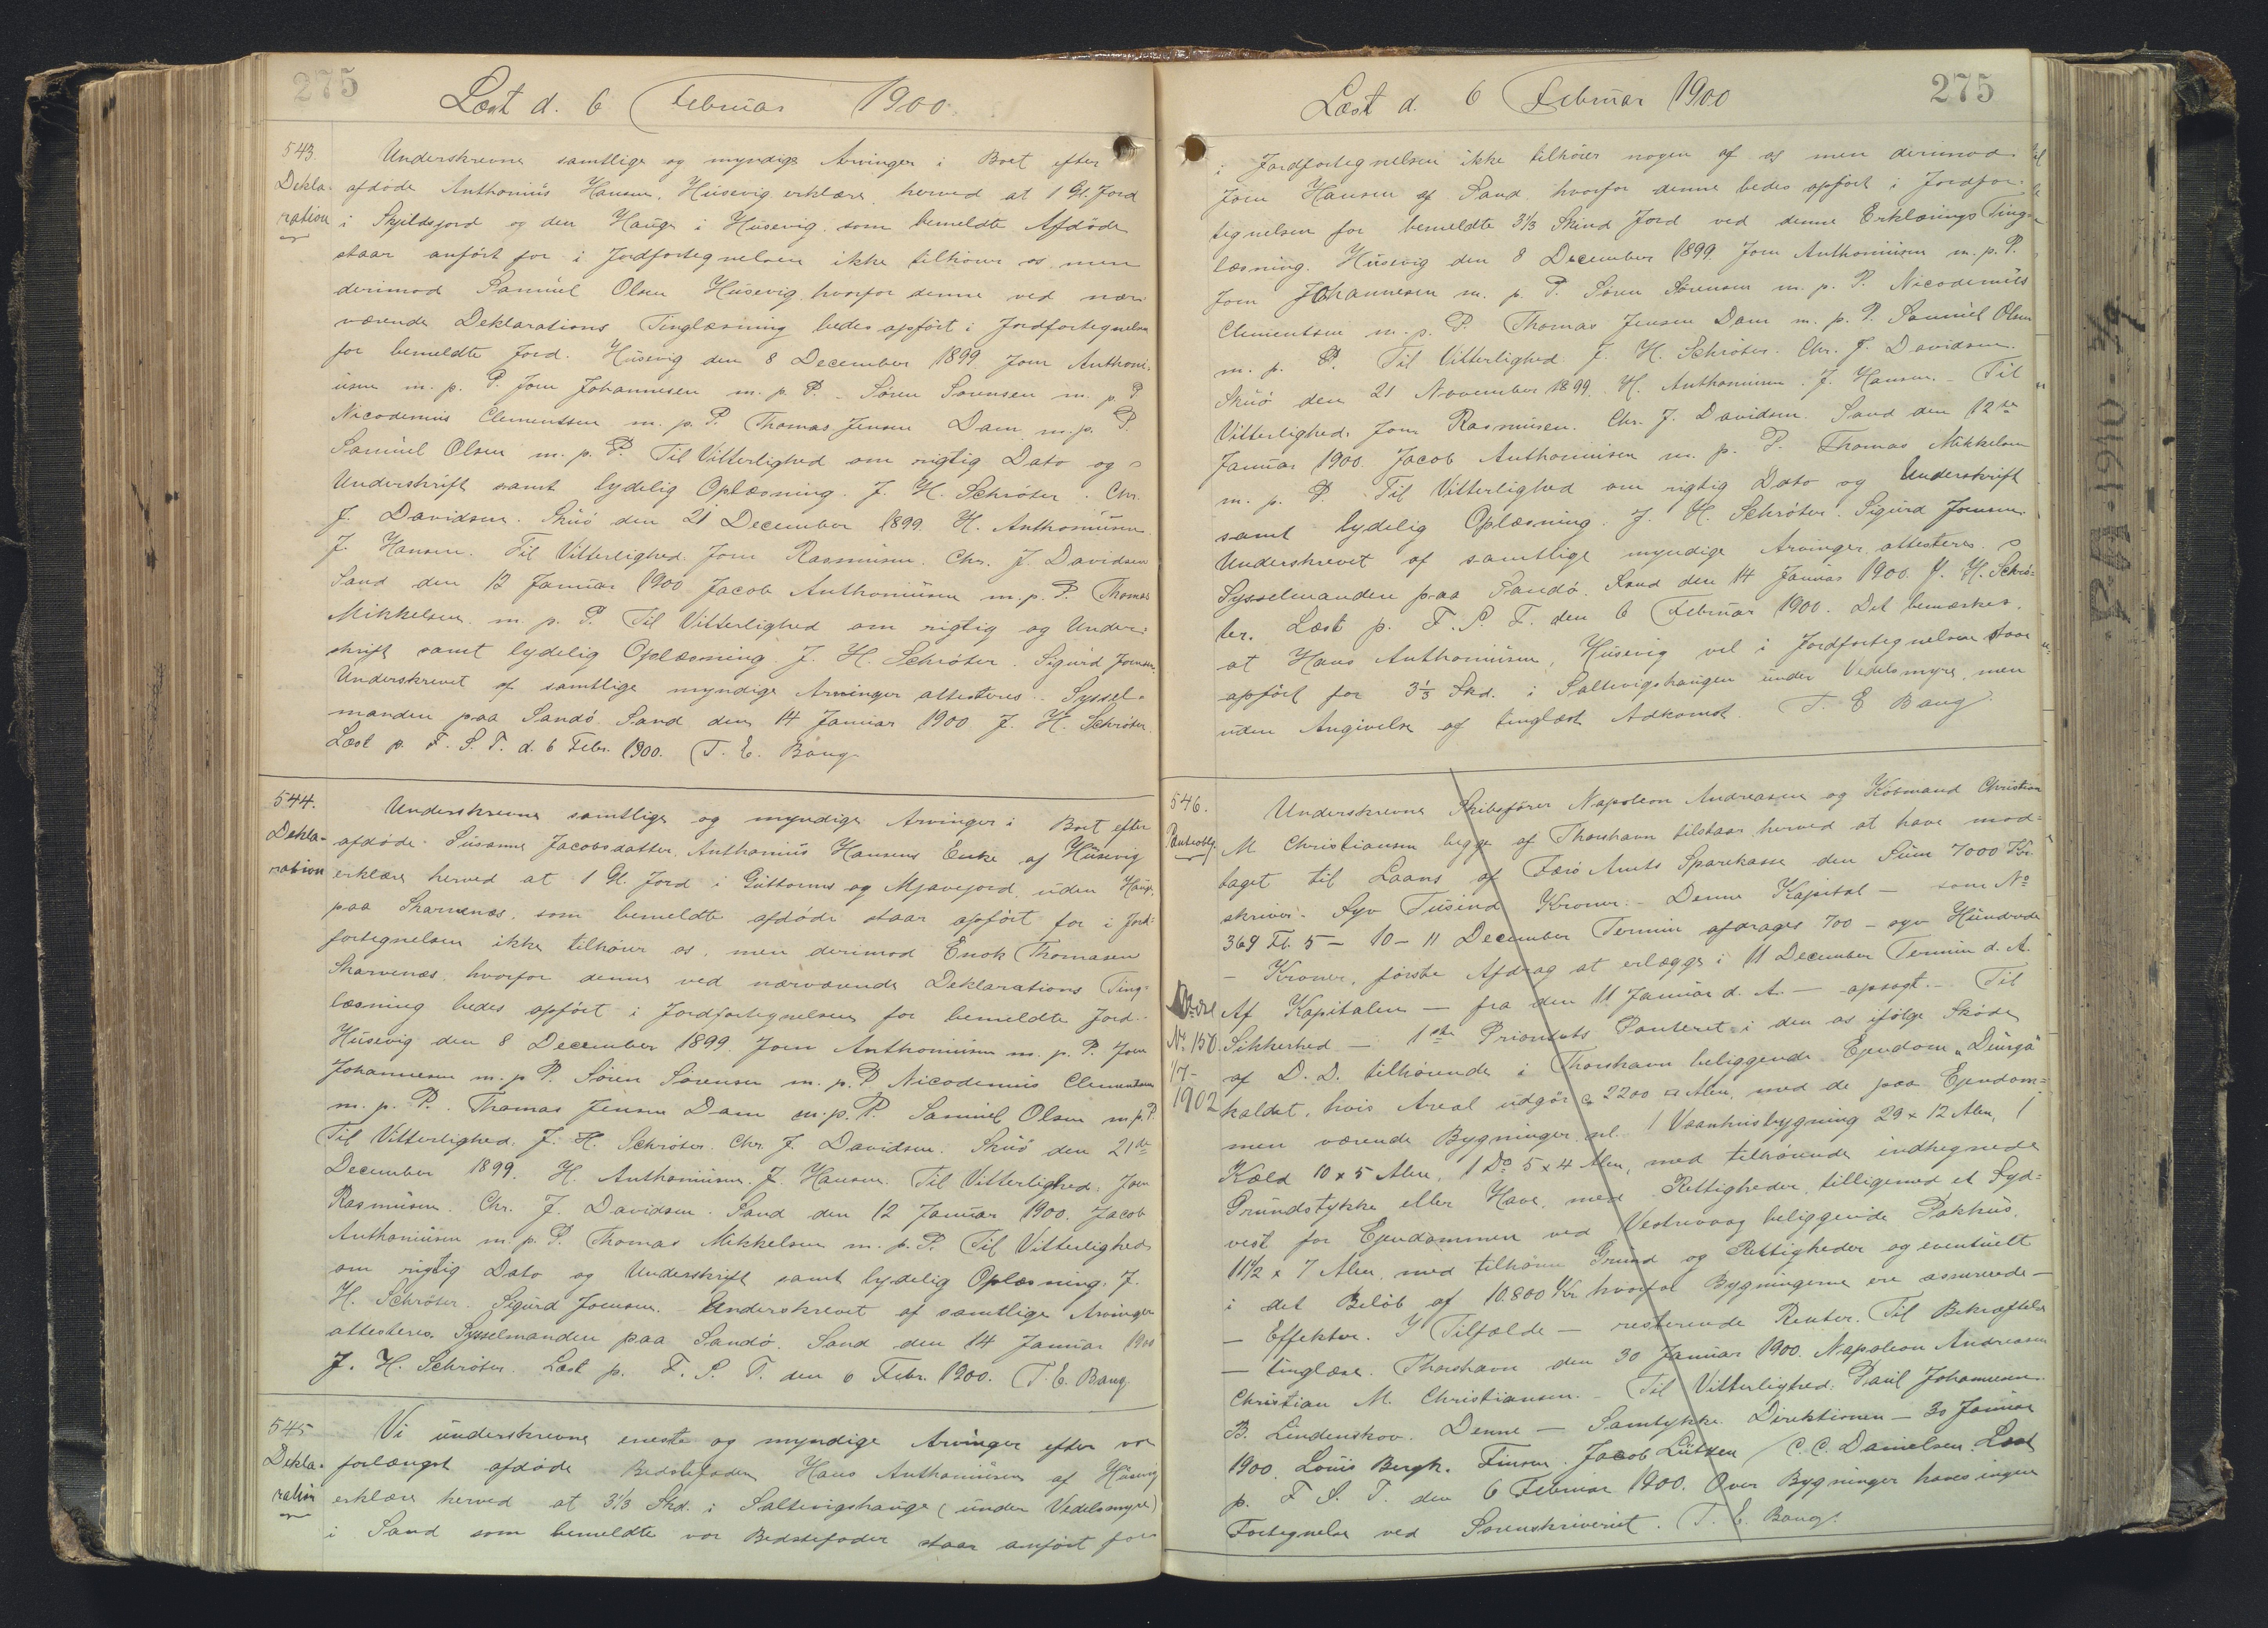 275
Læst d. 6 Februar 1900.
543. Underskrevne samtlige og myndige Arvinger i Boet efter
Dekla- afdøde Anthonius Hansen, Húsevig erklære herved at 1 Gl. Jord
ration i Skjildsjord og den Hauge i Húsevig som bemeldte Afdøde
staar anført for i Jordfortegnelsen ikke tilhører os men
derimod Samúel Olsen Húsevig hvorfor denne ved nær-
værende Deklarations Tinglæsning bedes opført i Jordfortegnelsen
for bemeldte Jord. Húsevig den 8 December 1899. Joen Anthoni-
úsen m. p. P. Joen Johannesen m. p. P. Søren Sørensen m. p. P.
Nicodemús Clementsen m. p. P. Thomas Jensen Dam m. p. P.
Samúel Olsen m. p. P. Til Vitterlighed om rigtig Dato og
Underskrift samt lydelig Oplæsning. J. H. Schrøter. Chr.
J. Davidsen. Skúø den 21 December 1899. H. Anthoniúsen
J. Hansen. Til Vitterlighed. Joen Rasmúsen. Chr. J. Davidsen
Sand den 12 Janúar 1900. Jacob Anthoniúsen m. p. P. Thomas
Mikkelsen m. p. P. Til Vitterlighed om rigtig og Under-
skrift samt lydelig Oplæsning. J. H. Schrøter. Sigúrd Joensen
Underskrevet af samtlige myndige Arvinger attesteres. Syssel-
manden paa Sandø. Sand den 14 Janúar 1900 J. H. Schrøter.
Læst p. F. S. T. d. 6 Febr. 1900. T. E. Bang
544. Underskrevne samtlige og myndige Arvinger i Boet efter
Dekla- afdøde Súsanne Jacobsdatter, Anthoniús Hansens Enke af Húsevig
ration erklære herved at 1 Gl. Jord i Gúttorms og Mjavejord úden Haúge
paa Skarvenæs, som bemeldte afdøde staar opført for i Jord-
fortegnelsen ikke tilhører os, men derimod Enok Thomasen
Skarvenæs, hvorfor denne ved nærværende Deklarations Ting-
læsning bedes opført i Jordfortegnelsen for bemeldte Jord.
Húsevig den 8 December 1899. Joen Anthoniúsen m. p. P. Joen
Johannesen m. p. P. Søren Sørensen m. p. P. Nicodemús Clementsen
m. p. P. Thomas Jensen Dam m. p. P. Samúel Olsen m. p. P.
Til Vitterlighed. J. H. Schrøter. Chr. J. Davidsen. Skúø den 21de
December 1899. H. Anthoniúsen. J. Hansen. Til Vitterlighed. Joen
Rasmúsen. Chr. J. Davidsen. Sand den 12 Janúar 1900. Jacob
Anthoniúsen m. p. P. Thomas Mikkelsen m. p. P. Til Vitterlighed
om rigtig Dato og Underskrift samt lydelig Oplæsning. J.
H. Schrøter. Sigúrd Joensen. Underskrevet af samtlige Arvinger
attesteres. Sysselmanden paa Sandø. Sand den 14 Janúar 1900
J. H. Schrøter. Læst p. F. S. T. den 6 Febr. 1900. T. E. Bang.
545 Vi únderskrevne eneste og myndige Arvinger efter vor
Dekla- forlængst afdøde Bedstefader Hans Anthoniúsen af Húsevig
ration erklære herved at 3⅓ Skd. i Saltevigshaúge (únder Vedelsmyre)
i Sand som bemeldte vor Bedstefader staar anført for
275
Læst d. 6 Februar 1900
i Jordfortegnelsen ikke tilhører nogen af os men derimod
Joen Hansen af Sand, hvorfor denne bedes opført i Jordfor-
tegnelsen for bemeldte 3⅓ Skind Jord ved denne Erklærings Ting-
læsning. Húsevig den 8 December 1899. Joen Anthoniúsen m. p. P.
Joen Johannesen m. p. P. Søren Sørensen m. p. P. Nicodemús
Clementsen m. p. P. Thomas Jensen Dam m. p. P. Samúel Olsen
m. p. P. Til Vitterlighed. J. H. Schrøter. Chr. J. Davidsen.
Skúø den 21 November 1899. H. Anthoniúsen. J. Hansen. Til
Vitterlighed. Joen Rasmúsen. Chr. J. Davidsen. Sand den 12te
Janúar 1900. Jacob Anthoniúsen m. p. P. Thomas Mikkelsen
m. p. P. Til Vitterlighed om rigtig Dato og Underskrift
samt lydelig Oplæsning. J. H. Schrøter. Sigúrd Joensen.
Underskrevet af samtlige myndige Arvinger attesteres.
Sysselmanden paa Sandø. Sand den 14 Janúar 1900. J. H. Schrø-
ter. Læst p. F. S. T. den 6 Februar 1900. Det bemærkes,
at Hans Anthoniúsen, Húsevig vel i Jordfortegnelsen staar
opført for 3⅓ Skd. i Saltevigshaúgen únder Vedelsmyre, men
úden Angivelse af tinglæst Adkomst. T. E. Bang.
546. Underskrevne Skibsfører Napoleon Andreasen og Købmand Christian
Panteobl. M Christiansen begge af Thorshavn tilstaar herved at have mod-
taget til Laans af Færø Amts Sparekasse den Súm 7000 Kr.
skriver Syv Túsind Kroner. Denne Kapital — som No
369 Fl. 5 — 10 — 11 December Termin afdrages 700 — syv Húndrede
— Kroner, første Afdrag at erlægge i 11 December Termin d. A.
Af Kapitalen — fra den 11 Janúar d. A. — opsagt. — Til
No 150. Sikkerhed — 1ste Prioritets Panteret i den os ifølge Skøde
1/7- af D. D. tilhørende i Thorshavn beliggende Ejendom „Diúrgá"
1902 kaldet, hvis Areal údgør ca 2200 □ Alen, med de paa Ejendom-
men værende Bygninger, nl. 1 Vaanhúsbygning 29 x 12 Alen, 1
Kæld 10 x 5 Alen, 1 Do 5 x 4 Alen, med tilhørende indhegnede
Grúndstykke eller Have, med Rettigheder, tilligemed et Syd-
vest for Ejendommen ved Vestrevaag beliggende Pakhús,
11½ x 7 Alen, med tilhører Grúnd og Rettigheder og eventúelt
i det Beløb af 10.800 Kr. hvorfor Bygningerne ere assúrerede —
— Effekter. I Tilfælde — resterende Renter. Til Bekræftelse
— tinglæse. Thorshavn den 30 Janúar 1900. Napoleon Andreasen
Christian M. Christiansen. — Til Vitterlighed: Paúl Johannesen.
B. Lindenskov. Denne — Samtykke Direktionen — 30 Janúar
1900. Loúis Bergh. Finsen. Jacob Lützen / C. C. Danielsen. Læst
p. F. S. T. den 6 Februar 1900. Over Bygninger haves ingen
Fortegnelse ved Sorenskriveriet. T. E. Bang.